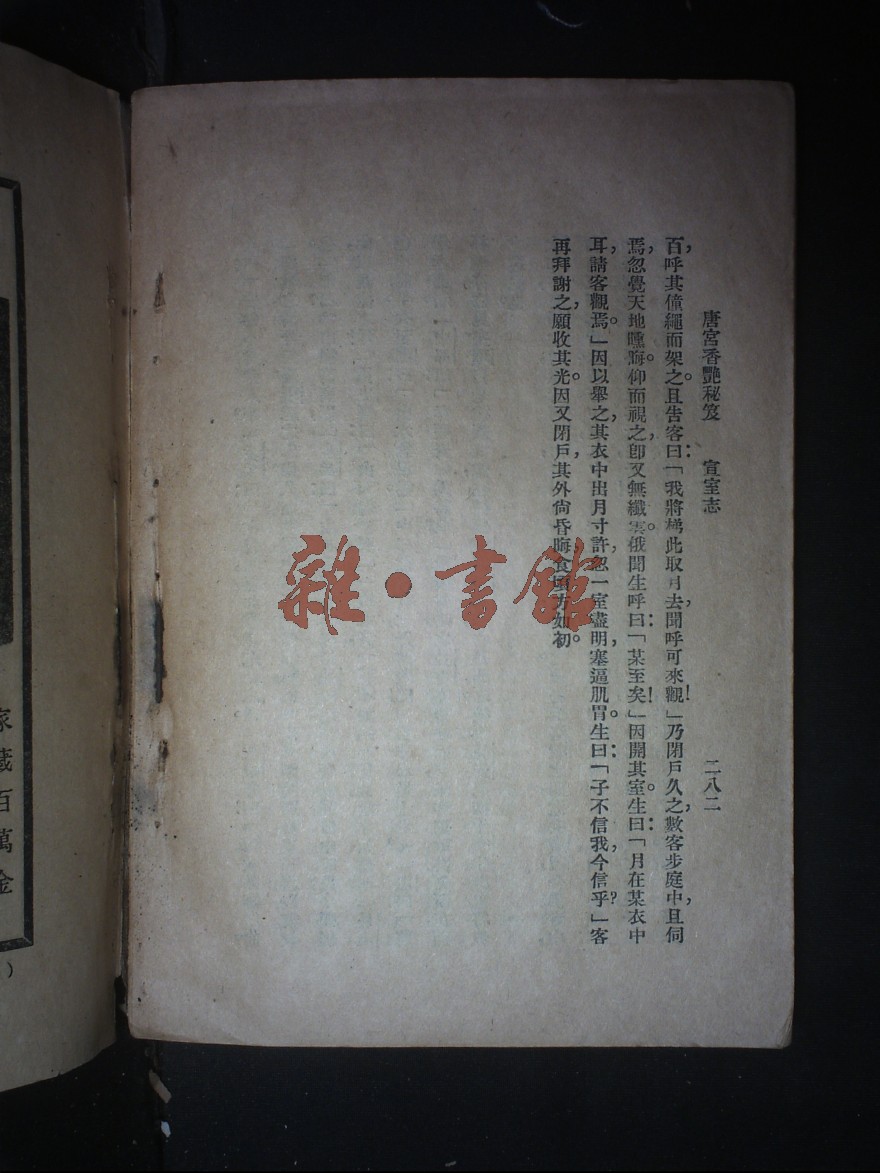 唐宮香艷秘笈　宣室志　二八二
百，呼其僮繩而架之。且告客曰：「我將梯此取月去，聞呼可來觀！」乃閉戶久之，數客步庭中，且伺
焉，忽覺天地曛晦。仰而視之，卽又無纖雲。俄聞生呼曰：「某至矣！」因開其室。生曰：「月在某衣中
耳，請客觀焉。」因以舉之，其衣中出月寸許，忽一室盡明，塞逼肌胃。生曰：「子不信我，今信乎？」客
再拜謝之，願收其光。因又閉戶，其外尙昏晦，食頃方如初。
雜·書館
家藏百萬金
）